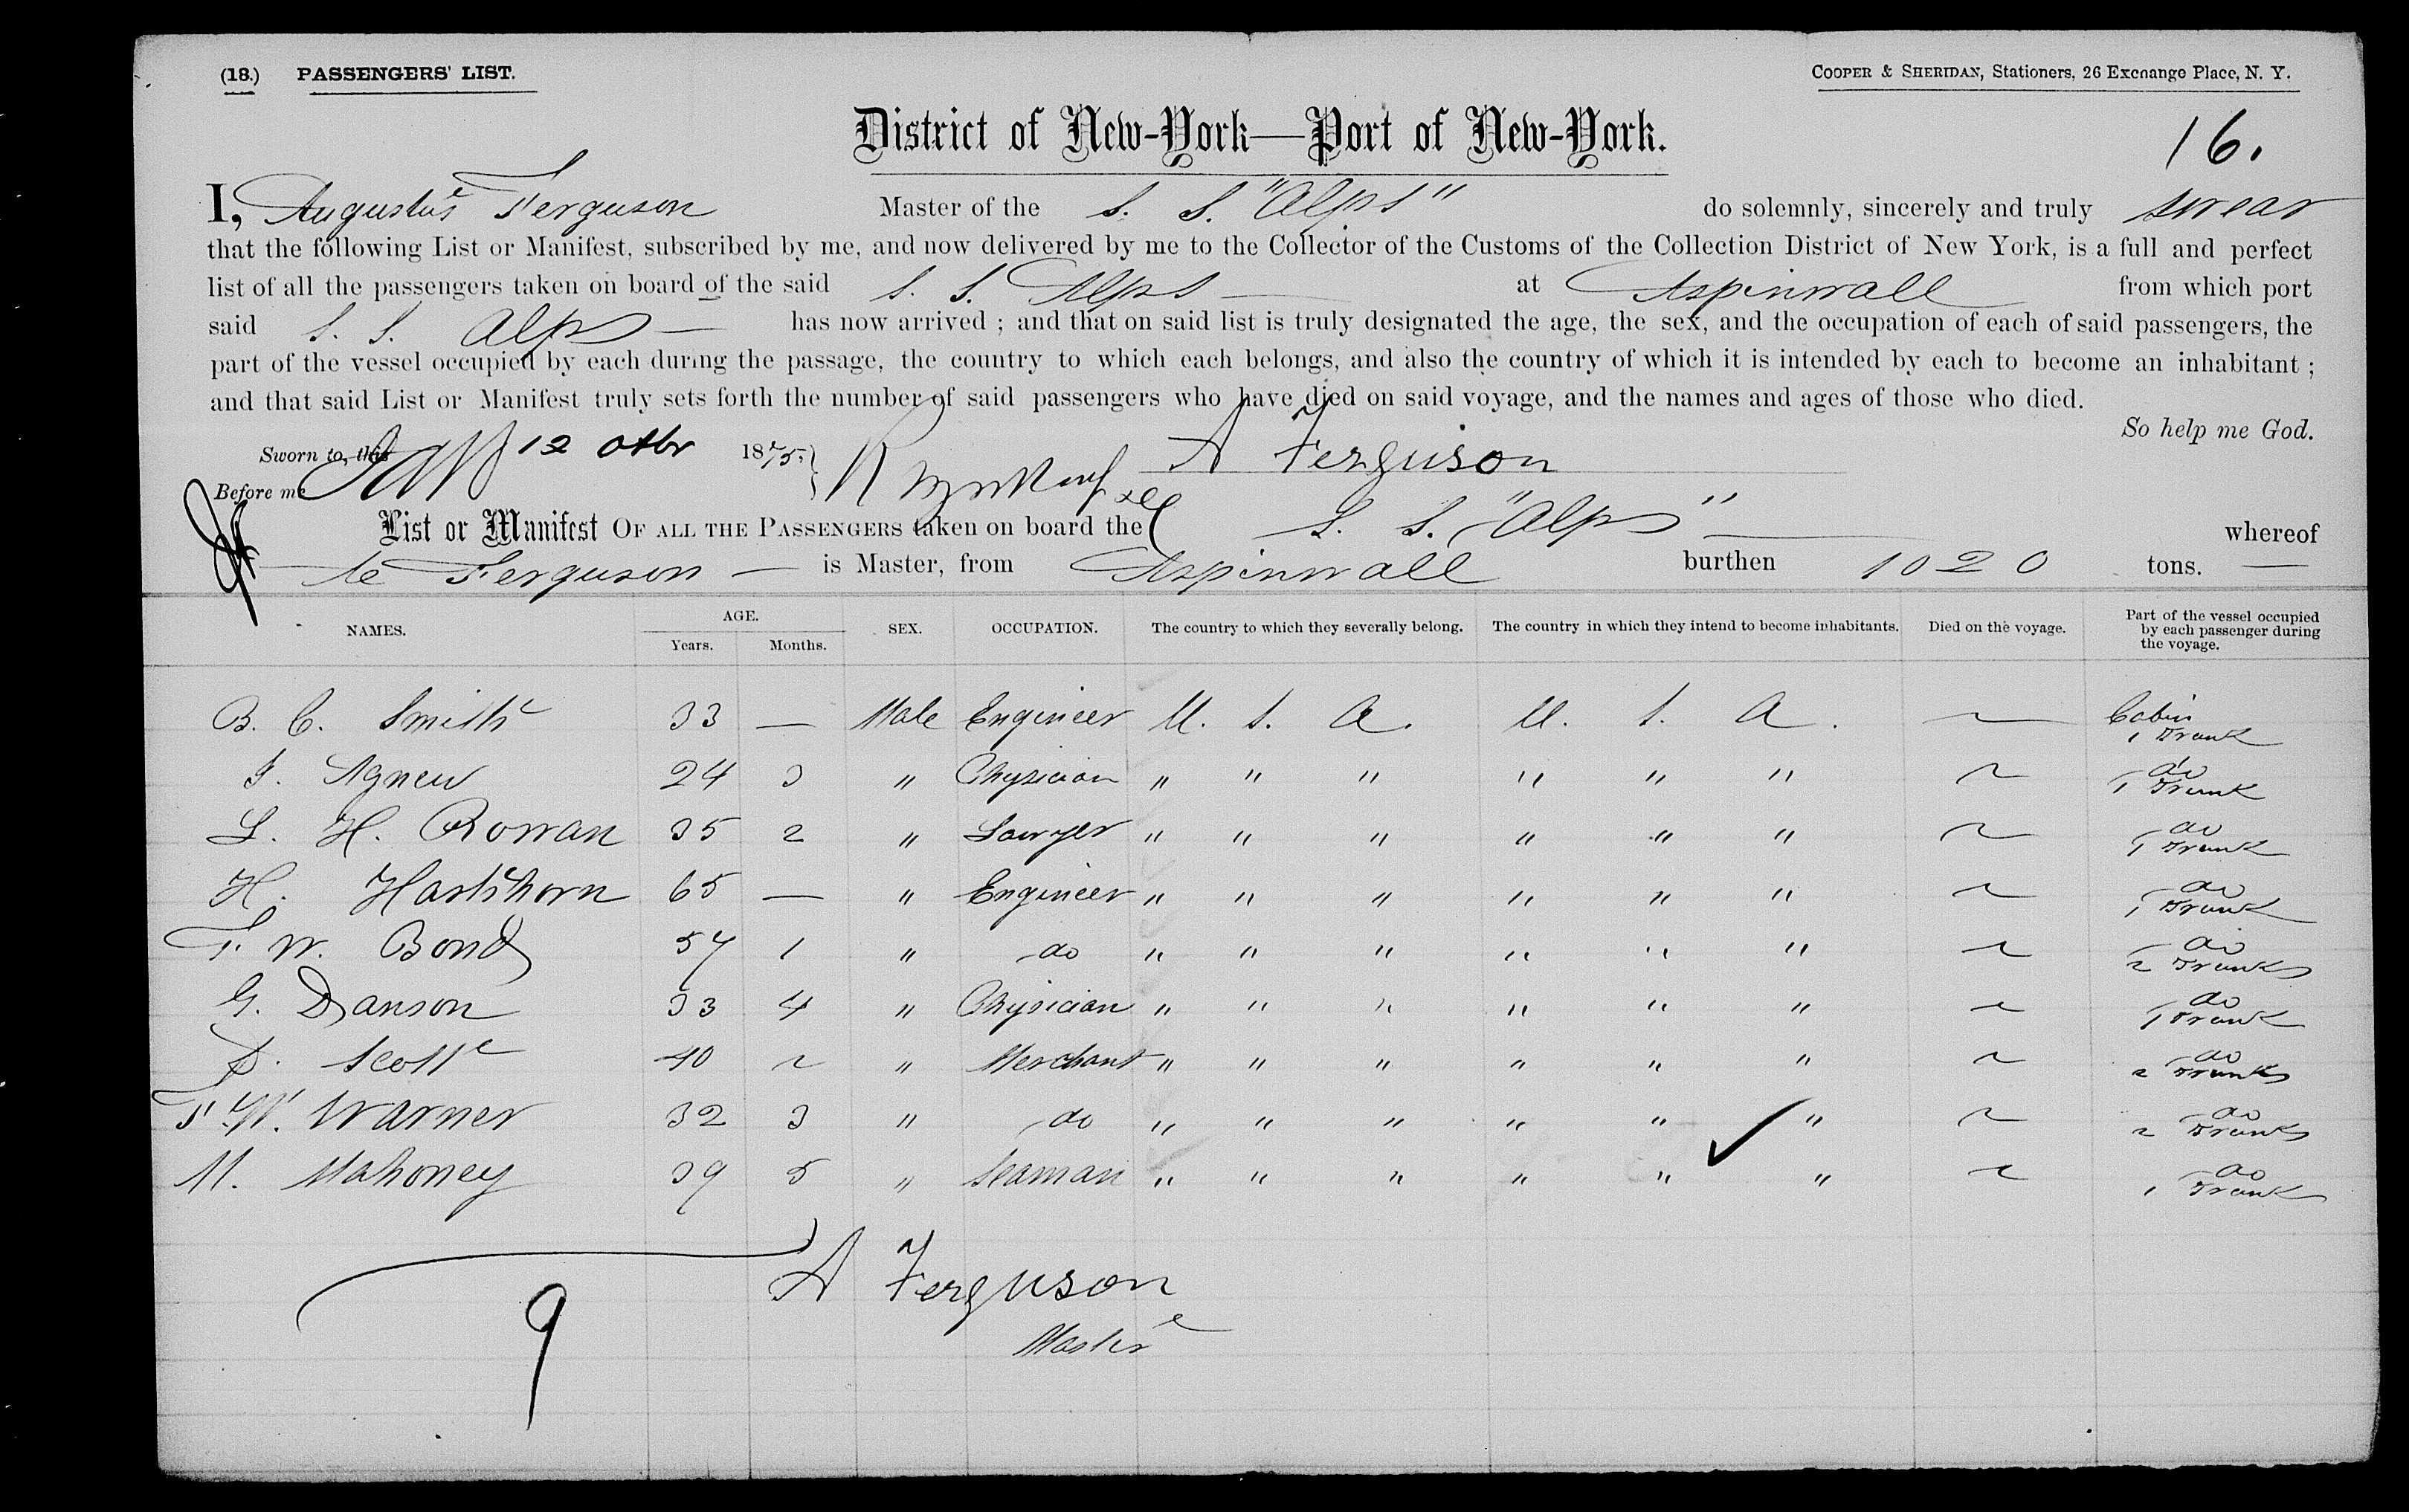 (18.) PASSENGERS' LIST.
COOPER & SHERIDAN, Stationers, 26 Exchange Place, N. Y.
District of New-York—Port of New-York.
16.
I, Augustus Ferguson Master of the S. S. "Alps" do solemnly, sincerely and truly swear
that the following List or Manifest, subscribed by me, and now delivered by me to the Collector of the Customs of the Collection District of New York, is a full and perfect
list of all the passengers taken on board of the said S. S. Alps — at Aspinwall from which port
said S. S. Alps — has now arrived ; and that on said list is truly designated the age, the sex, and the occupation of each of said passengers, the
part of the vessel occupied by each during the passage, the country to which each belongs, and also the country of which it is intended by each to become an inhabitant ;
and that said List or Manifest truly sets forth the number of said passengers who have died on said voyage, and the names and ages of those who died.
So help me God.
Sworn to, this 12 Otbr 1875. A Ferguson
Before me
List or Manifest OF ALL THE PASSENGERS taken on board the S. S. "Alps" whereof
Ferguson — is Master, from Aspinwall burthen 1020 tons. —
NAMES. AGE. Years. Months. SEX. OCCUPATION. The country to which they severally belong. The country in which they intend to become inhabitants. Died on the voyage. Part of the vessel occupied by each passenger during the voyage.
B. C. Smith 33 — Male Engineer U. S. A. U. S. A. — Cabin 1 Trunk
Agnew 24 3 " Physician " " " " " " ~ do 1 Trunk
L. H. Rowan 35 2 " Lawyer " " " " " " ~ do 1 Trunk
H. Hartshorn 65 — " Engineer " " " " " " ~ do 1 Trunk
F. W. Bond 57 1 " do " " " " " " ~ do 2 Trunks
G. Danson 33 4 " Physician " " " " " " ~ do 1 Trunk
D. Scott 40 2 " Merchant " " " " " " ~ do 2 Trunks
F. W. Warner 32 3 " do " " " " " " ~ do 2 Trunks
M. Mahoney 39 5 " Seaman " " " " " " ~ do 1 Trunk
A Ferguson
Master
9